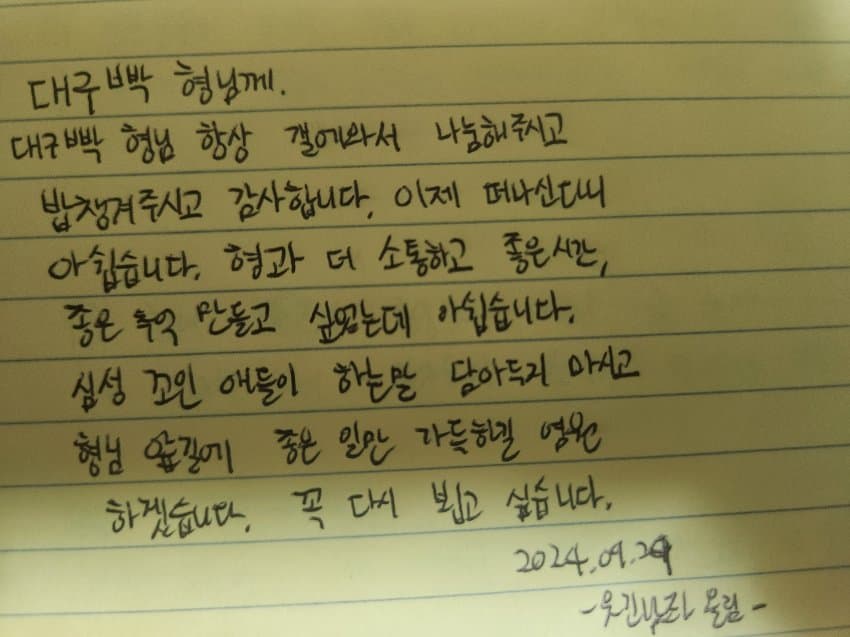 대구빡 형님께.
대구빡 형님 항상 갤에와서 나눔해주시고
밥챙겨주시고 감사합니다. 이제 떠나신다니
아쉽습니다. 형과 더 소통하고 좋은시간,
좋은 추억 만들고 싶었는데 아쉽습니다.
심성 꼬인 애들이 하는말 담아두지 마시고
형님 앞길에 좋은 일만 가득하길 염원
하겠습니다. 꼭 다시 뵙고 싶습니다.
2024.09.29
- 올림 -